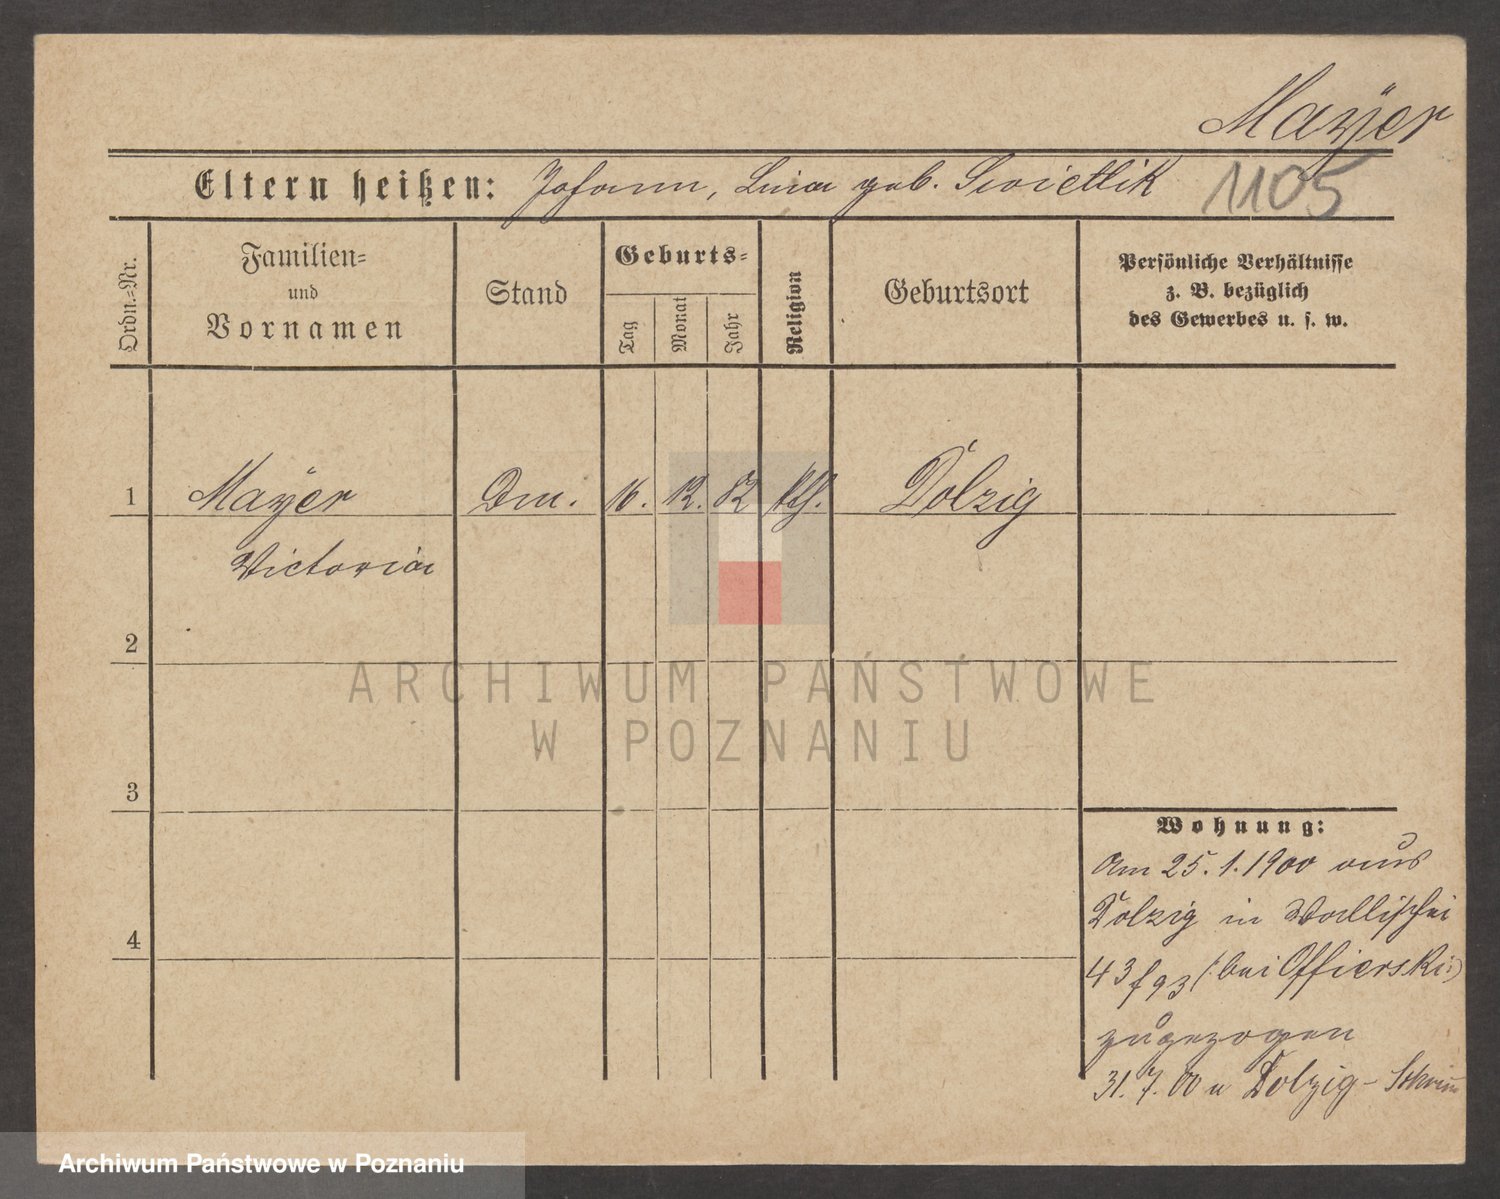 Mayer
Eltern heißen: Johann, Lina geb. Swietlik 1105
Ordn.=Nr.
Familien=
und
Vornamen
Stand
Geburts=
Tag
Monat
Jahr
Religion
Geburtsort
Persönliche Verhältnisse
z. B. bezüglich
des Gewerbes u. s. w.
1 Mayer Dm. 16. 12. 82 kth. Dolzig
Victoria
2
ARCHIWUM PAŃSTWOWE
W POZNANIU
3
4
Wohnung:
Am 25.1.1900 aus
Dolzig in Wallischei
43/93 (:bei Offierski:)
zugezogen
31.7.00 n Dolzig - Schrimm
Archiwum Państwowe w Poznaniu